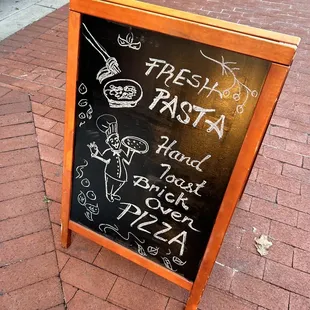 FRESH
PASTA
Hand
Toast
Brick
Oven
PIZZA